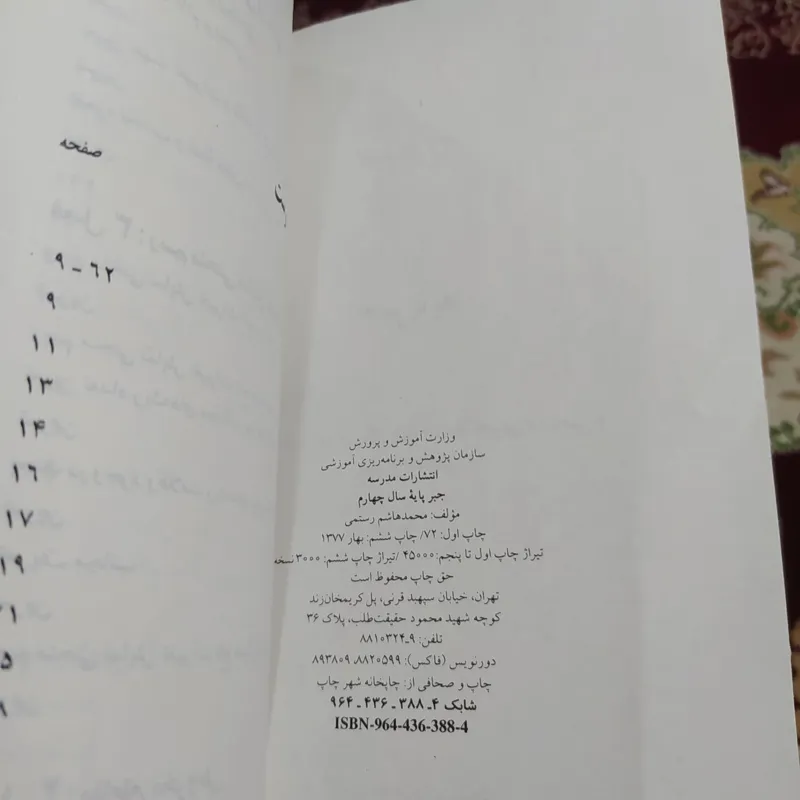 وزارت آموزش و پرورش
سازمان پژوهش و برنامه‌ریزی آموزشی
انتشارات مدرسه
جبر پایهٔ سال چهارم
مؤلف: محمدهاشم رستمی
چاپ اول: ۷۲/ چاپ ششم: بهار ۱۳۷۷
تیراژ چاپ اول تا پنجم: ۴۵۰۰۰ /تیراژ چاپ ششم: ۳۰۰۰ نسخه
حق چاپ محفوظ است
تهران، خیابان سپهبد قرنی، پل کریمخان‌زند
کوچه شهید محمود حقیقت‌طلب، پلاک ۳۶
تلفن: ۹ـ۸۸۱۰۳۲۴
دورنویس (فاکس): ۸۸۲۰۵۹۹، ۸۹۳۸۰۹
چاپ و صحافی از: چاپخانه شهر چاپ
شابک ۴ـ ۳۸۸ ـ ۴۳۶ ـ ۹۶۴
ISBN-964-436-388-4
صفحه
۹ ـ ۶۲
۹
۱۱
۱۳
۱۴
۱۶
۱۷
۱۹